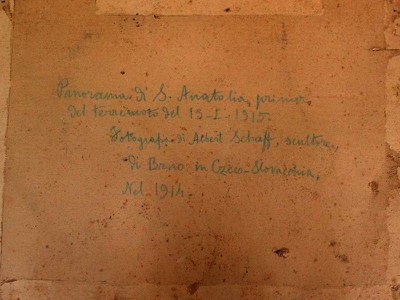 Panorama di S. Anatolia, prima
del terremoto del 13-I-1915.
Fotografia di Albert Schaff, scultore,
di Brno in Czeco-Slovacchia,
Nel 1914.